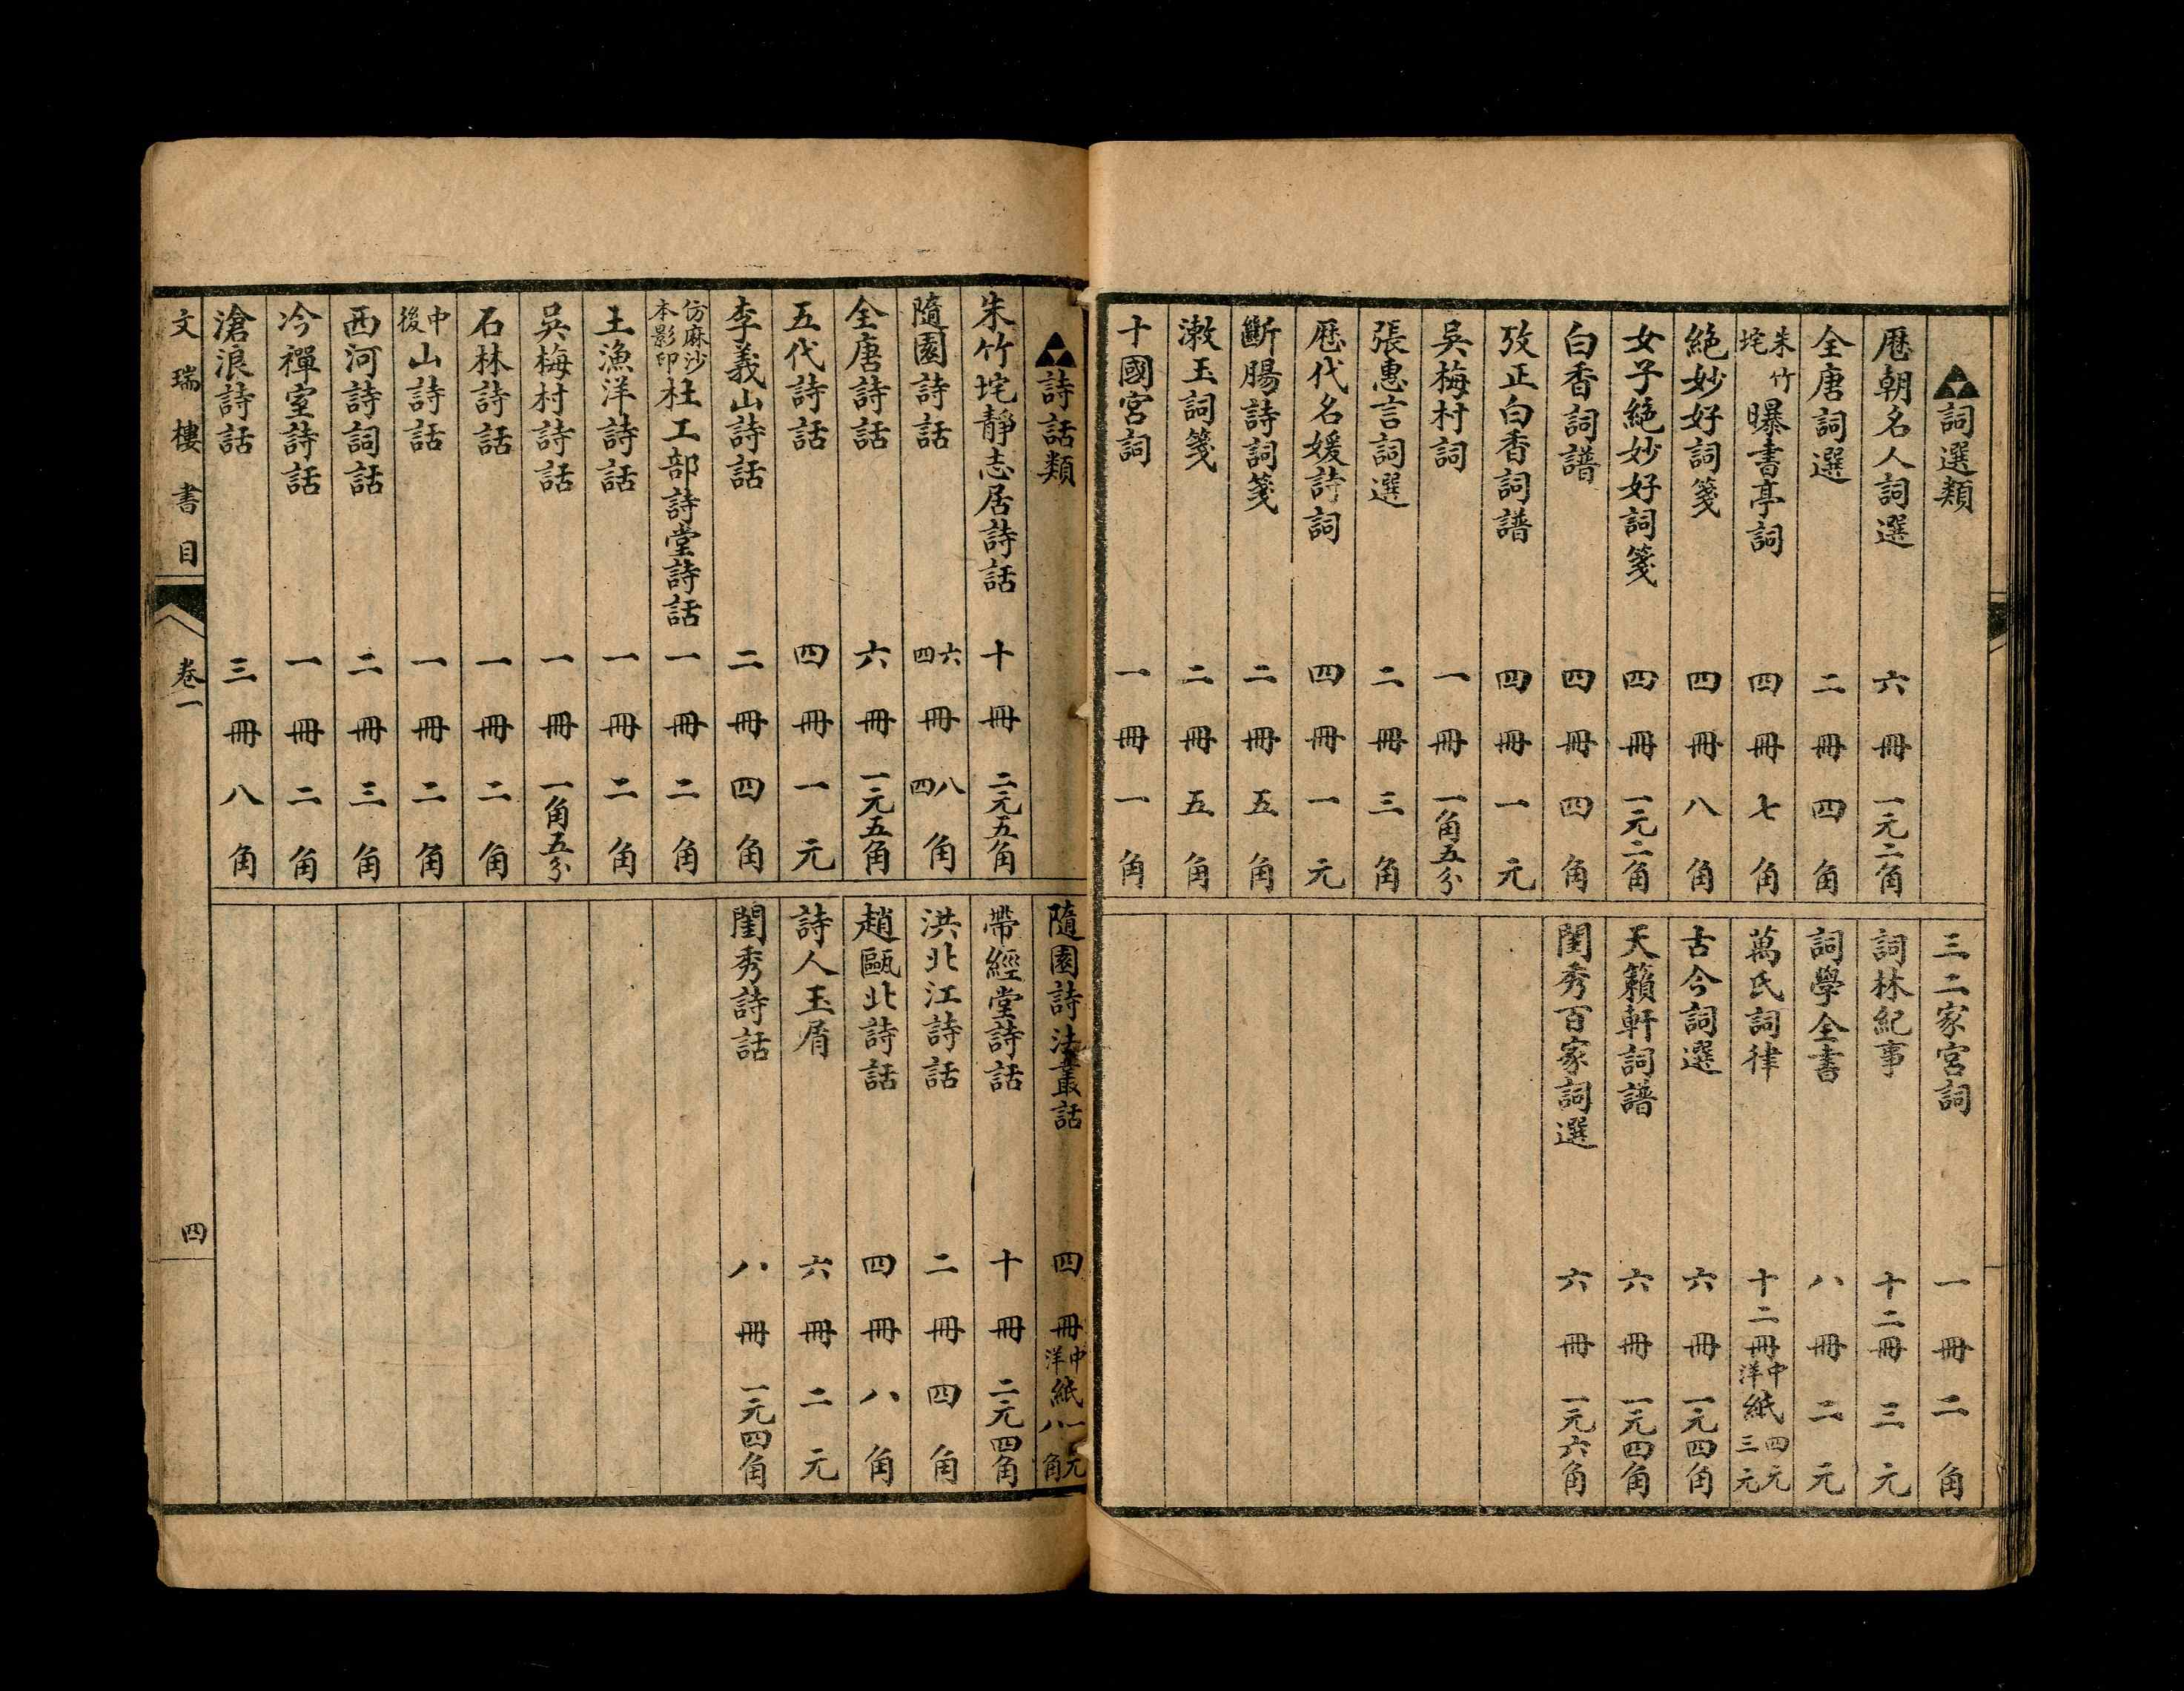 詞選類
歷朝名人詞選 六冊 一元二角
全唐詞選 二冊 四角
朱竹垞曝書亭詞 四冊 七角
絕妙好詞箋 四冊 八角
女子絕妙好詞箋 四冊 一元二角
白香詞譜 四冊 四角
攷正白香詞譜 四冊 一元
吳梅村詞 一冊 一角五分
張惠言詞選 二冊 三角
歷代名媛詩詞 四冊 一元
斷腸詩詞箋 二冊 五角
漱玉詞箋 二冊 五角
十國宮詞 一冊 一角
三二家宮詞 一冊 二角
詞林紀事 十二冊 三元
詞學全書 八冊 二元
萬氏詞律 十二冊 中洋紙 四元三元
古今詞選 六冊 一元四角
天籟軒詞譜 六冊 一元四角
閨秀百家詞選 六冊 一元六角
詩話類
朱竹垞靜志居詩話 十冊 二元五角
隨園詩話 六四冊 八四角
全唐詩話 六冊 一元五角
五代詩話 四冊 一元
李義山詩話 二冊 四角
仿麻沙本影印杜工部詩堂詩話 一冊 二角
王漁洋詩話 一冊 二角
吳梅村詩話 一冊 一角五分
石林詩話 一冊 二角
中後山詩話 一冊 二角
西河詩詞話 二冊 三角
冷禪室詩話 一冊 二角
滄浪詩話 三冊 八角
隨園詩法叢話 四冊 中洋紙 一元八角
帶經堂詩話 十冊 二元四角
洪北江詩話 二冊 四角
趙甌北詩話 四冊 八角
詩人玉屑 六冊 二元
閨秀詩話 八冊 一元四角
文瑞樓書目 卷一 四